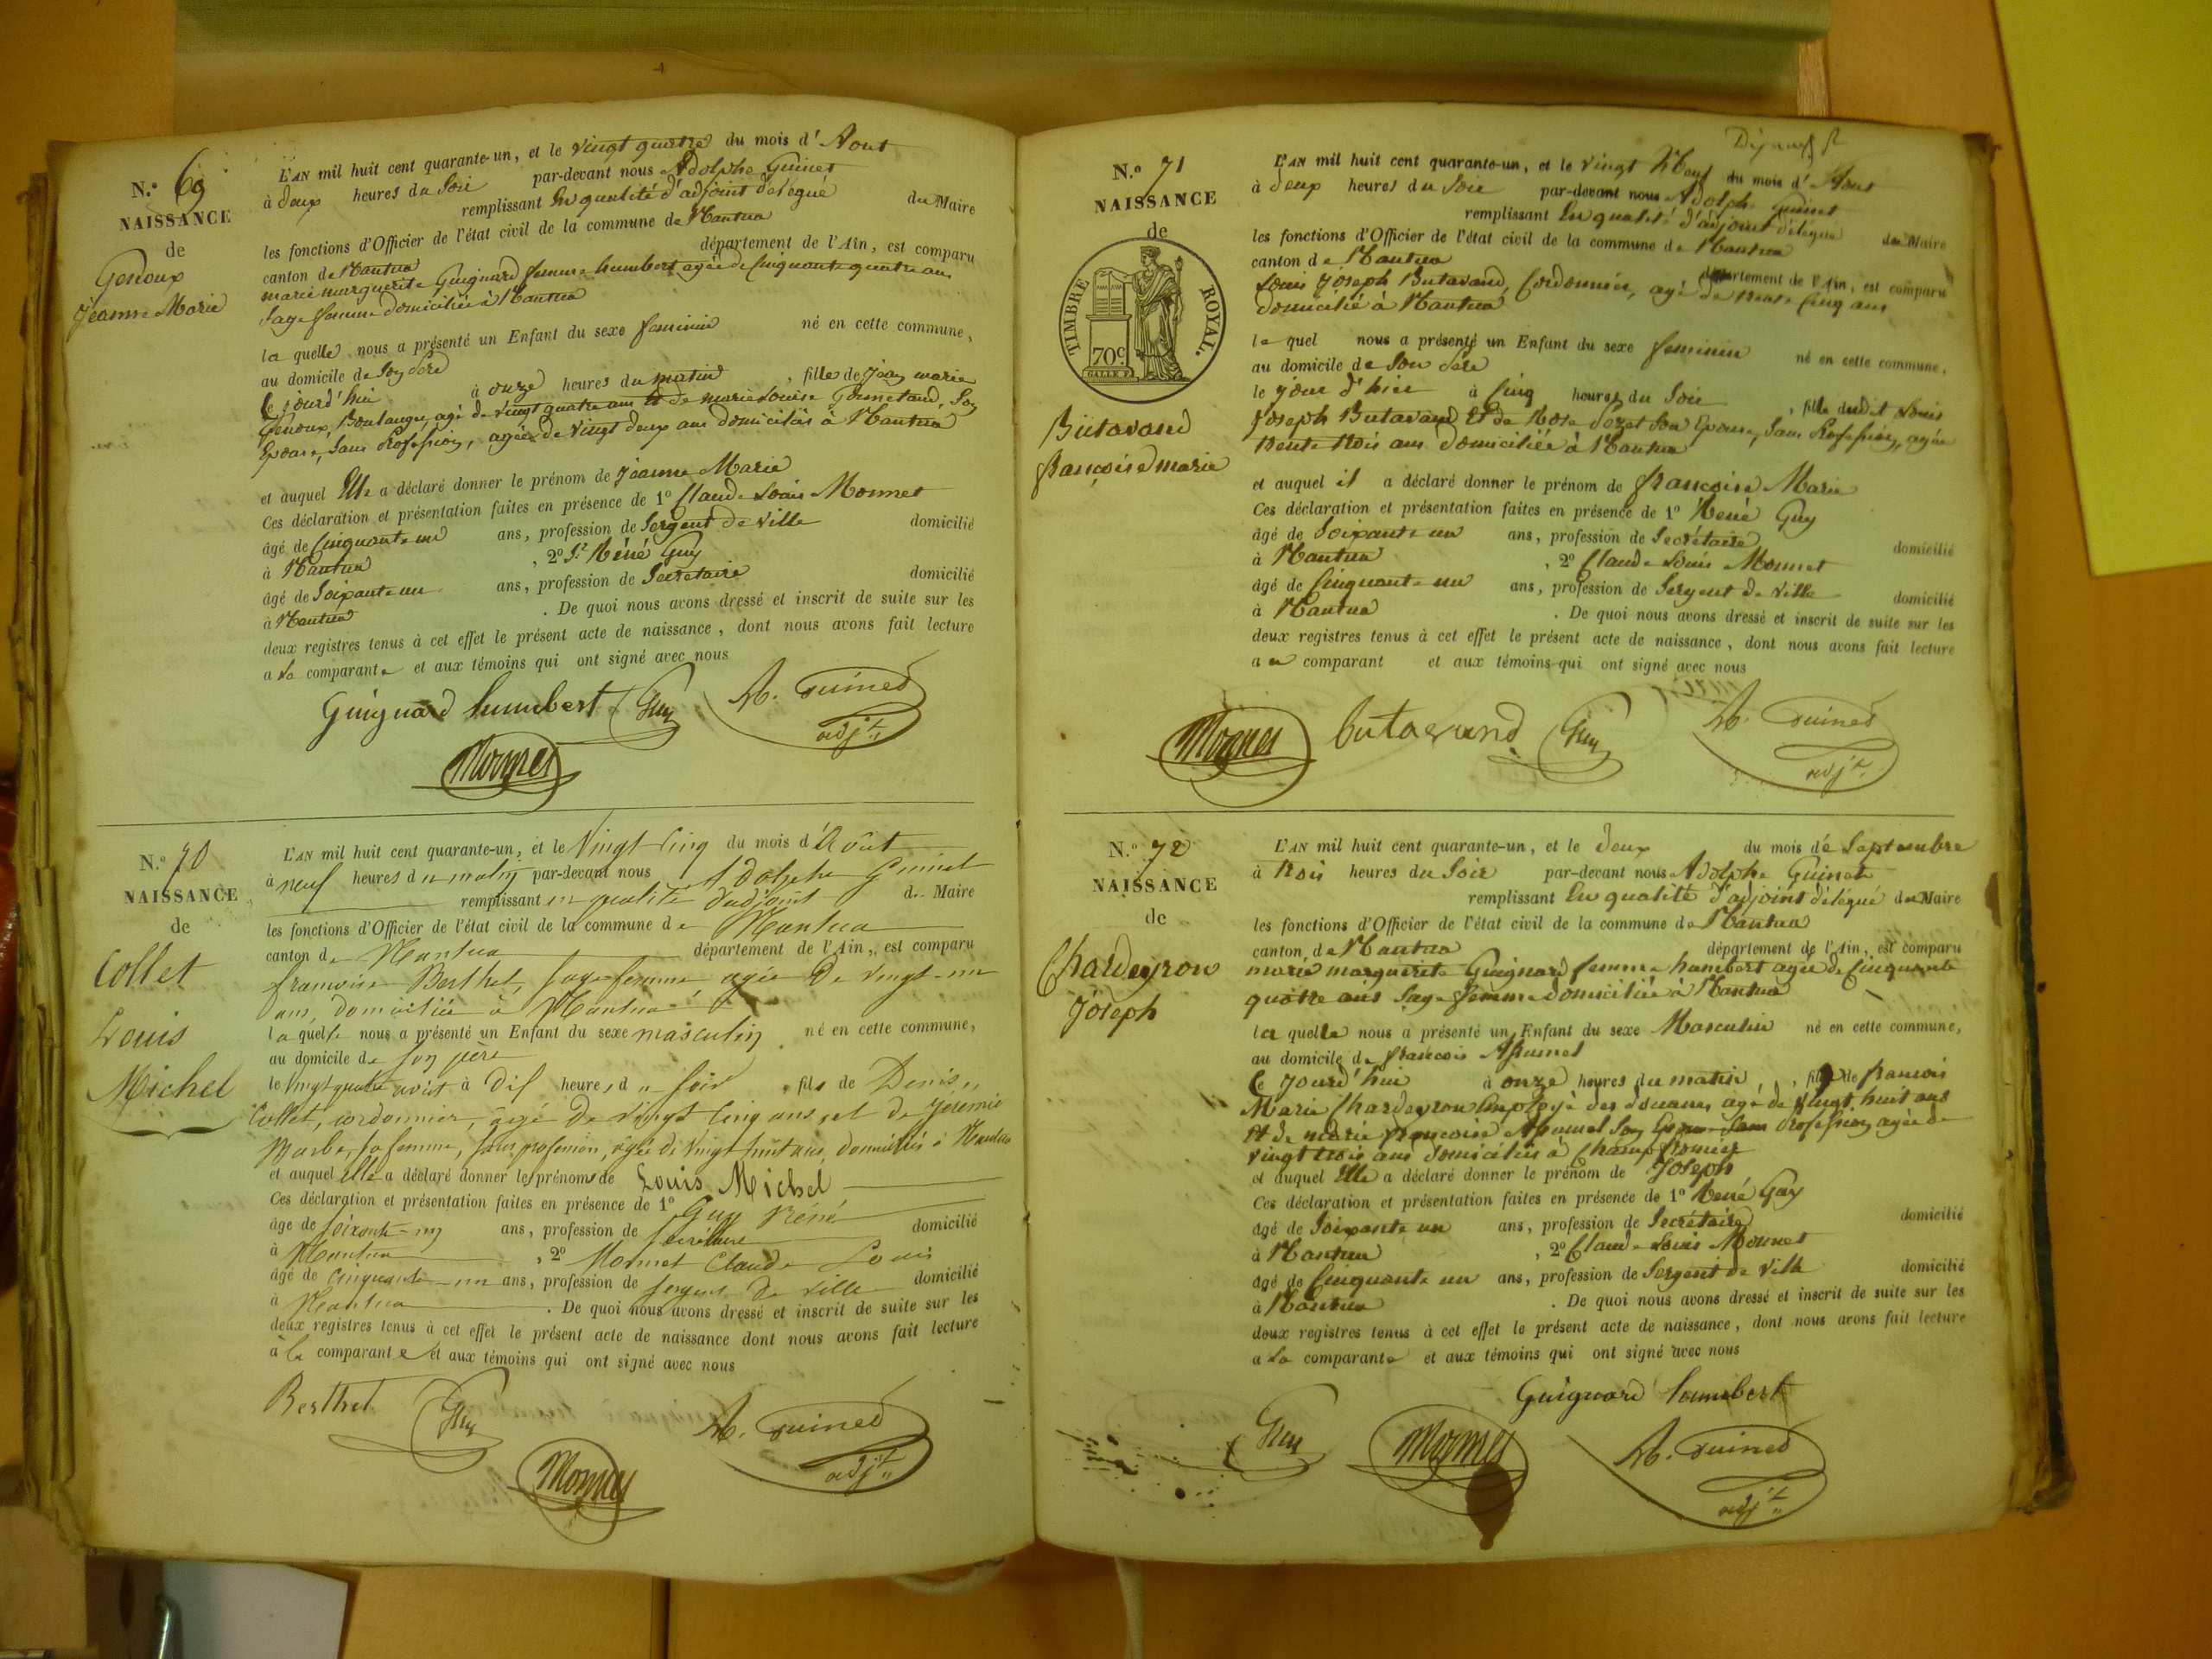 N.º 69
NAISSANCE
de
Genoux
Jeanne Marie
L'AN mil huit cent quarante-un, et le vingt quatre du mois d'Aout
à deux heures du Soir par-devant nous Adolphe Guinet
remplissant En qualité d'adjoint délégué du Maire
les fonctions d'Officier de l'état civil de la commune de Nantua
canton de Nantua département de l'Ain, est comparu
marie marguerite Guignard femme humbert agée de Cinquante quatre ans
Sage femme domiciliée à Nantua
la quelle nous a présenté un Enfant du sexe feminin né en cette commune,
au domicile de Son père
Ce jourd'hui à onze heures du matin, fille de jean marie
Genoux, Boulanger, agé de vingt quatre ans Et de marie Louise Son
Epouse, Sans Profession, agée de vingt deux ans domiciliés à Nantua
et auquel Elle a déclaré donner le prénom de jeanne Marie
Ces déclaration et présentation faites en présence de 1º Claude Louis Monnet
âgé de Cinquante un ans, profession de Sergent de ville domicilié
à Nantua, 2º Sr Réné Guy
âgé de Soixante un ans, profession de Secretaire domicilié
à Nantua. De quoi nous avons dressé et inscrit de suite sur les
deux registres tenus à cet effet le présent acte de naissance, dont nous avons fait lecture
a la comparante et aux témoins qui ont signé avec nous
Guignard humbert Guy A. Guinet
adjt
Monnet
N.º 70
NAISSANCE
de
Collet
Louis
Michel
L'AN mil huit cent quarante-un, et le Vingt Cinq du mois d'Août
à neuf heures du matin par-devant nous Adolphe Guinet
remplissant en qualité d'adjoint d.. Maire
les fonctions d'Officier de l'état civil de la commune de Nantua
canton de Nantua département de l'Ain, est comparu
françoise Berthet, Sage-femme, agée de vingt-un
ans, domiciliée à Nantua
la quelle nous a présenté un Enfant du sexe masculin né en cette commune,
au domicile de son père
le vingt quatre août à dix heures du soir, fils de Denis
Collet, cordonnier, âgé de vingt cinq ans, et de
sa femme, sans profession, âgée de vingt huit ans, domiciliés à Nantua
et auquel elle a déclaré donner les prénoms de Louis Michel
Ces déclaration et présentation faites en présence de 1º Guy Réné
âgé de soixante-un ans, profession de secrétaire domicilié
à Nantua, 2º Monnet Claude Louis
âgé de cinquante-un ans, profession de sergent de ville domicilié
à Nantua. De quoi nous avons dressé et inscrit de suite sur les
deux registres tenus à cet effet le présent acte de naissance dont nous avons fait lecture
à la comparante et aux témoins qui ont signé avec nous
Berthet Guy A. Guinet
adjt
Monnet
N.º 71
NAISSANCE
de
TIMBRE ROYAL.
70c
Butavand
françoise marie
L'AN mil huit cent quarante-un, et le vingt Neuf du mois d'Aout
à deux heures du Soir par-devant nous Adolphe Guinet
remplissant En qualité d'adjoint délégué du Maire
les fonctions d'Officier de l'état civil de la commune de Nantua
canton de Nantua département de l'Ain, est comparu
Louis Joseph Butavand, Cordonnier, agé de trente Cinq ans
domicilié à Nantua
le quel nous a présenté un Enfant du sexe feminin né en cette commune,
au domicile de Son père
le jour d'hier à Cinq heures du Soir, fille dudit Louis
Joseph Butavand Et de Rose Son Epouse, Sans Profession, agée
trente trois ans domiciliée à Nantua
et auquel il a déclaré donner le prénom de françoise Marie
Ces déclaration et présentation faites en présence de 1º Réné Guy
âgé de Soixante un ans, profession de Secrétaire domicilié
à Nantua, 2º Claude Louis Monnet
âgé de Cinquante un ans, profession de Sergent de ville domicilié
à Nantua. De quoi nous avons dressé et inscrit de suite sur les
deux registres tenus à cet effet le présent acte de naissance, dont nous avons fait lecture
a u comparant et aux témoins qui ont signé avec nous
Monnet butavand Guy A. Guinet
adjt
N.º 72
NAISSANCE
de
Chardeyron
Joseph
L'AN mil huit cent quarante-un, et le deux du mois de Septembre
à trois heures du Soir par-devant nous Adolphe Guinet
remplissant En qualité d'adjoint délégué du Maire
les fonctions d'Officier de l'état civil de la commune de Nantua
canton de Nantua département de l'Ain, est comparu
marie marguerite Guignard femme humbert agée de Cinquante
quatre ans Sage femme domiciliée à Nantua
la quelle nous a présenté un Enfant du sexe Masculin né en cette commune,
au domicile de françois
Ce jourd'hui à onze heures du matin, fils de françois
Marie Chardeyron Employé des douanes, agé de vingt huit ans
Et de marie françoise Son Epouse Sans Profession agée de
vingt trois ans domiciliés à Champfromier
et auquel Elle a déclaré donner le prénom de Joseph
Ces déclaration et présentation faites en présence de 1º Réné Guy
âgé de Soixante un ans, profession de Secrétaire domicilié
à Nantua, 2º Claude Louis Monnet
âgé de Cinquante un ans, profession de Sergent de ville domicilié
à Nantua. De quoi nous avons dressé et inscrit de suite sur les
deux registres tenus à cet effet le présent acte de naissance, dont nous avons fait lecture
a la comparante et aux témoins qui ont signé avec nous
Guignard humbert
Guy Monnet A. Guinet
adjt